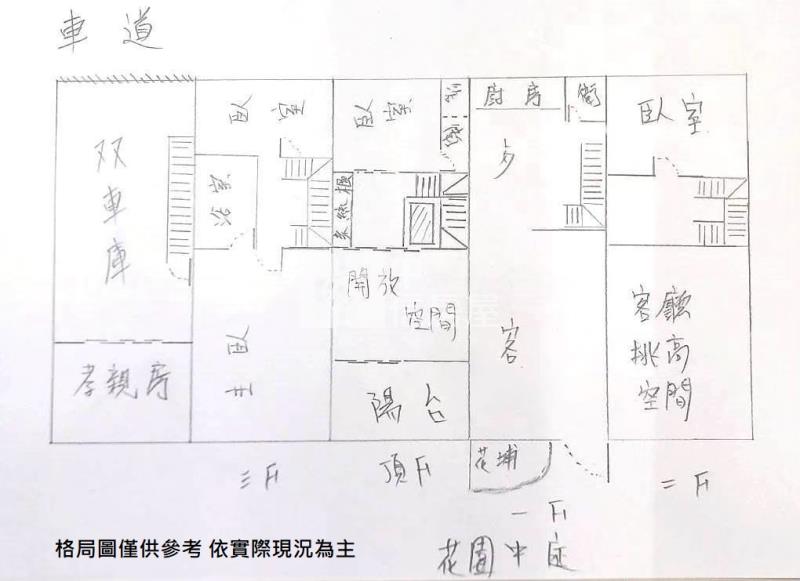 車道
双車庫
孝親房
臥室
浴室
主臥
三F
臥室
系統櫃
開放
空間
陽台
頂F
廚房
衛
客
花埔
一F
花園中庭
臥室
客廳
挑高
空間
二F
格局圖僅供參考 依實際現況為主